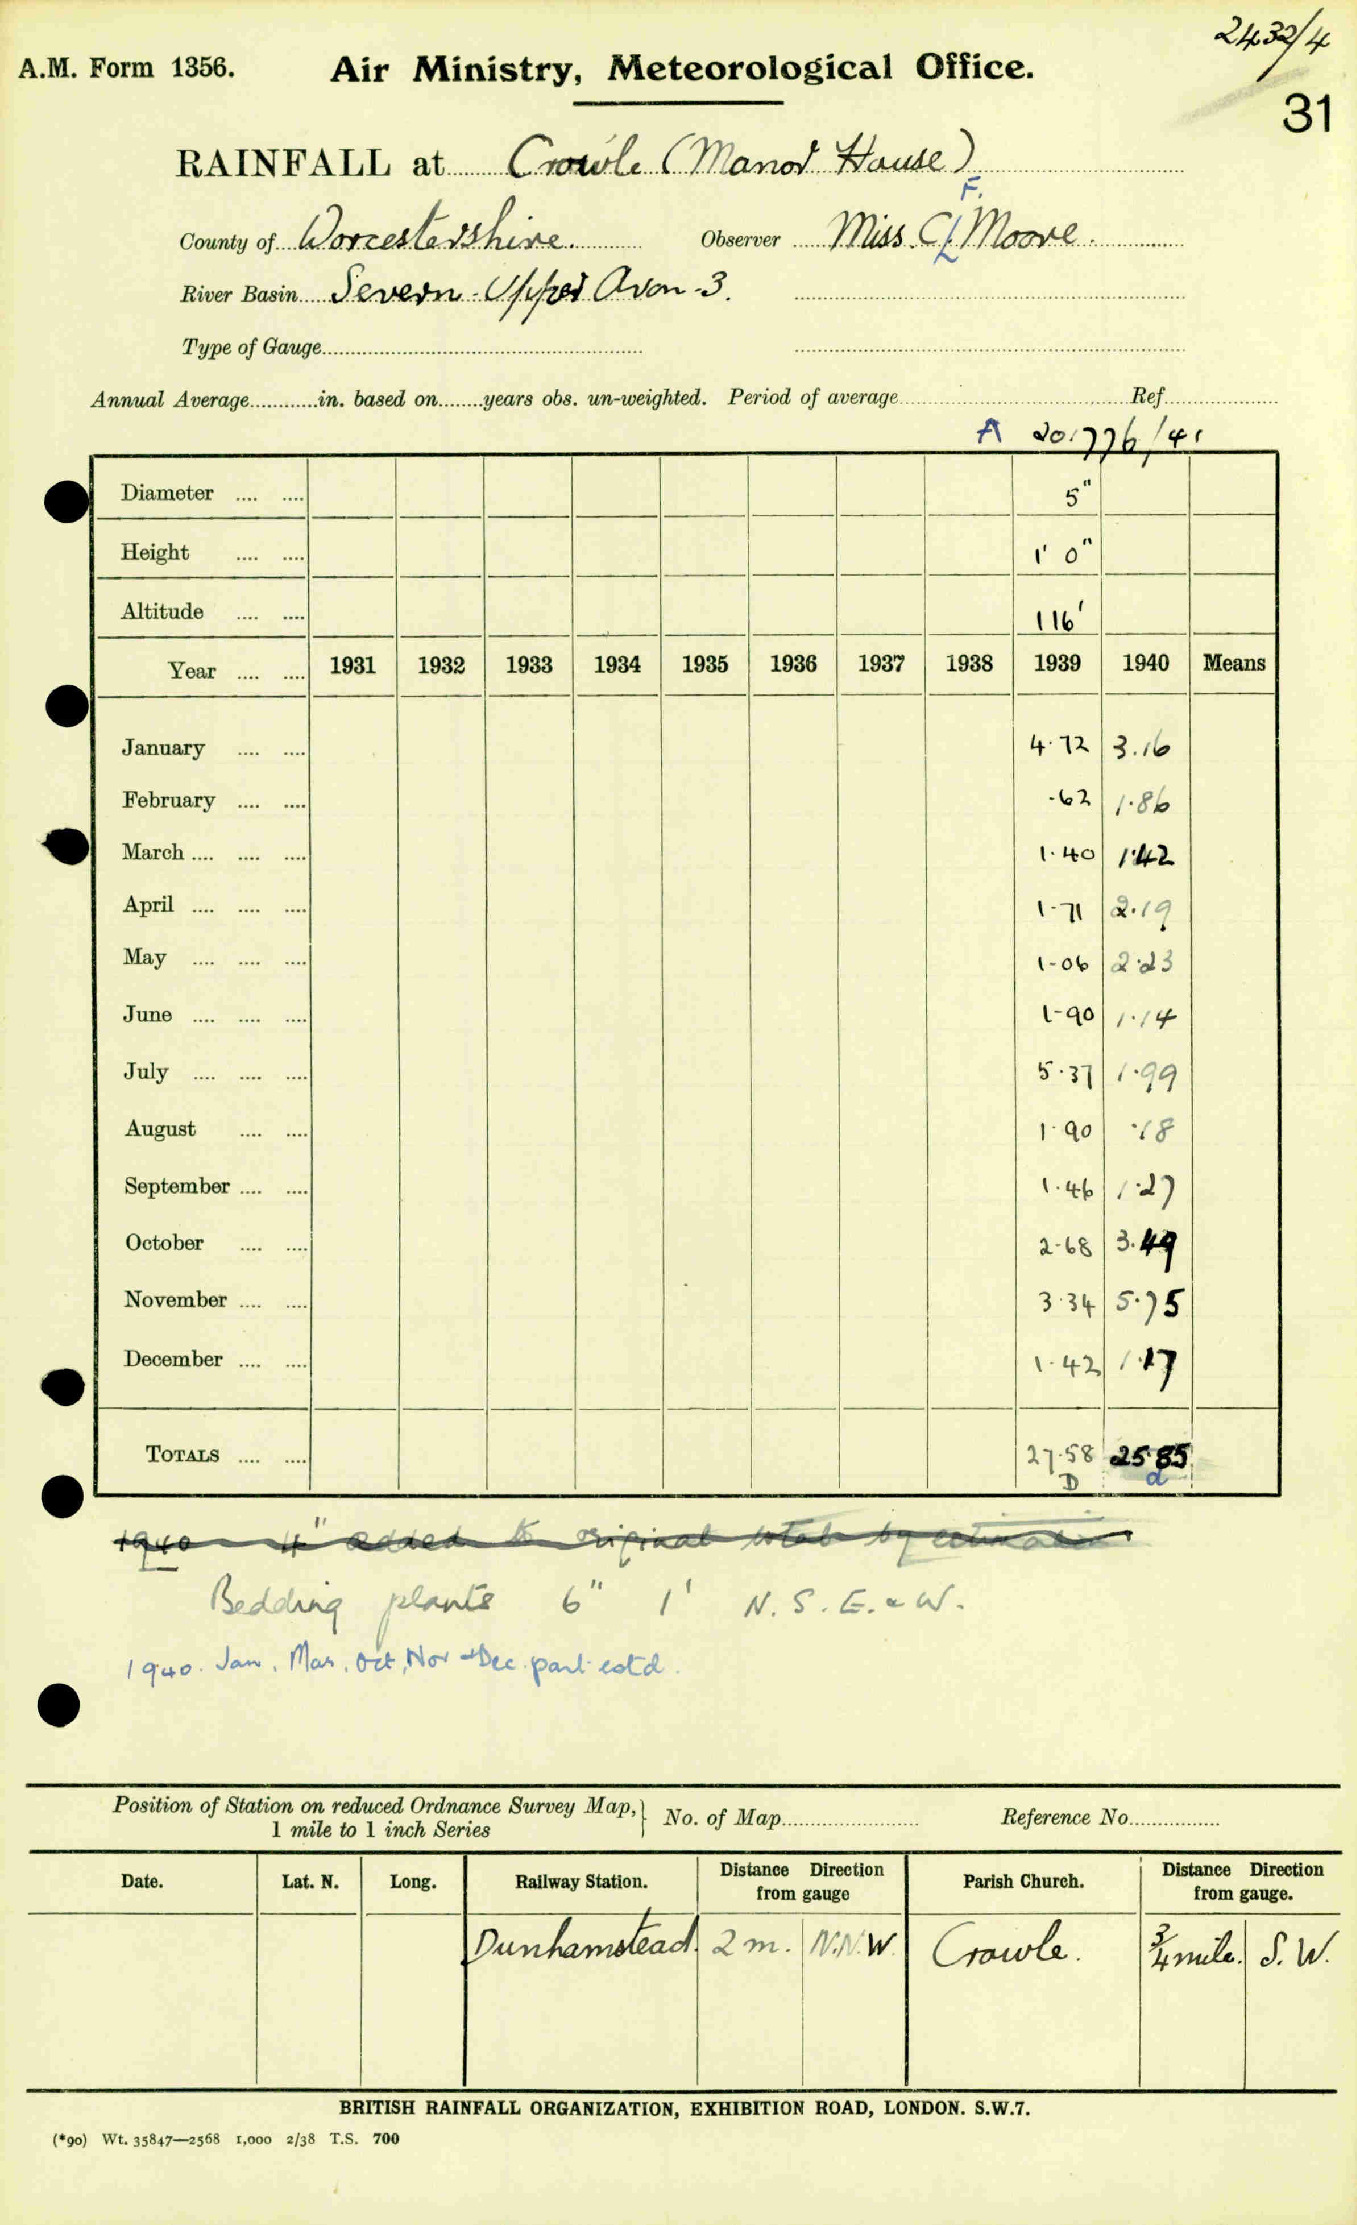 2432/4
A.M. Form 1356. Air Ministry, Meteorological Office.
31
RAINFALL at Crowle (Manor House)
F.
County of Worcestershire. Observer Miss C L Moore.
River Basin Severn-Upper Avon-3.
Type of Gauge
Annual Average in. based on years obs. un-weighted. Period of average Ref
A 201776/41
Diameter .... .... 5"
Height .... .... 1' 0"
Altitude .... .... 116'
Year .... .... 1931 1932 1933 1934 1935 1936 1937 1938 1939 1940 Means
January .... .... 4.72 3.16
February .... .... .62 1.86
March .... .... .... 1.40 1.42
April .... .... .... 1.71 2.19
May .... .... .... 1.06 2.23
June .... .... .... 1.90 1.14
July .... .... .... 5.37 1.99
August .... .... 1.90 .18
September .... .... 1.46 1.27
October .... .... 2.68 3.49
November .... .... 3.34 5.75
December .... .... 1.42 1.17
TOTALS .... .... 27.58 25.85
D d
1940 4" added to original totals by estimation
Bedding plants 6" 1' N. S. E. & W.
1940. Jan, Mar, Oct, Nov & Dec part estd.
Position of Station on reduced Ordnance Survey Map, 1 mile to 1 inch Series } No. of Map Reference No.
Date. Lat. N. Long. Railway Station. Distance Direction from gauge Parish Church. Distance Direction from gauge.
Dunhamstead. 2 m. N.N.W. Crowle. 3/4 mile. S. W.
BRITISH RAINFALL ORGANIZATION, EXHIBITION ROAD, LONDON. S.W.7.
(*90) Wt. 35847—2568 1,000 2/38 T.S. 700